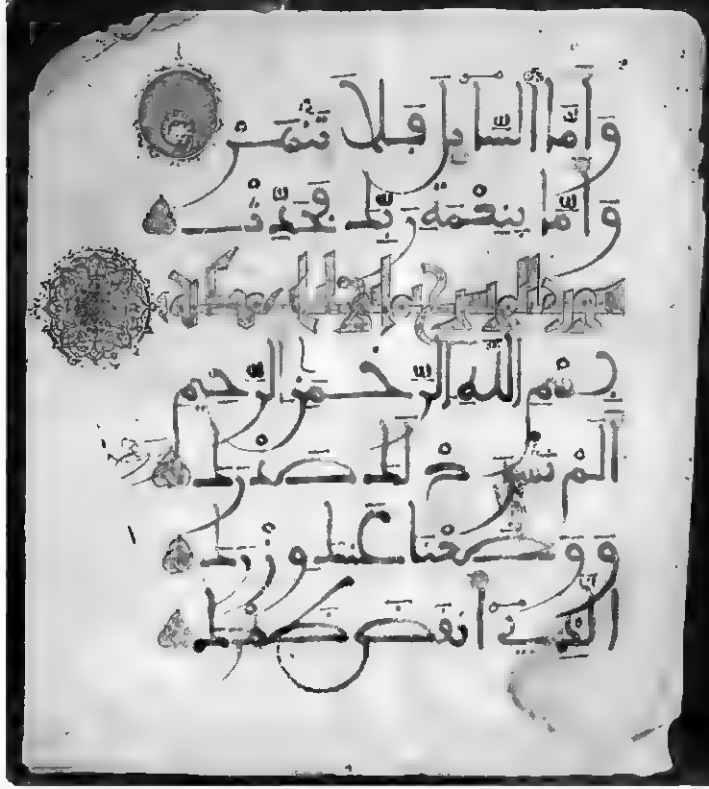 وَأَمَّا السَّائِلَ فَلَا تَنْهَرْ
وَأَمَّا بِنِعْمَةِ رَبِّكَ فَحَدِّثْ
سورة
بِسْمِ اللَّهِ الرَّحْمَنِ الرَّحِيمِ
أَلَمْ نَشْرَحْ لَكَ صَدْرَكَ
وَوَضَعْنَا عَنكَ وِزْرَكَ
الَّذِي أَنقَضَ ظَهْرَكَ